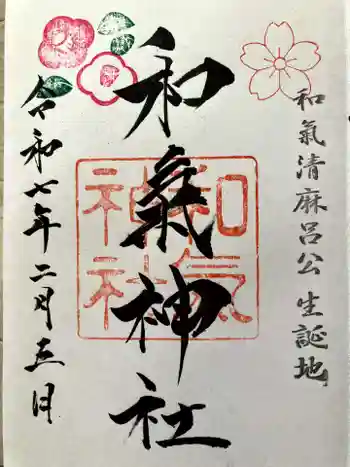 和氣清麻呂公 生誕地
和氣神社
和氣神社
令和七年二月三日